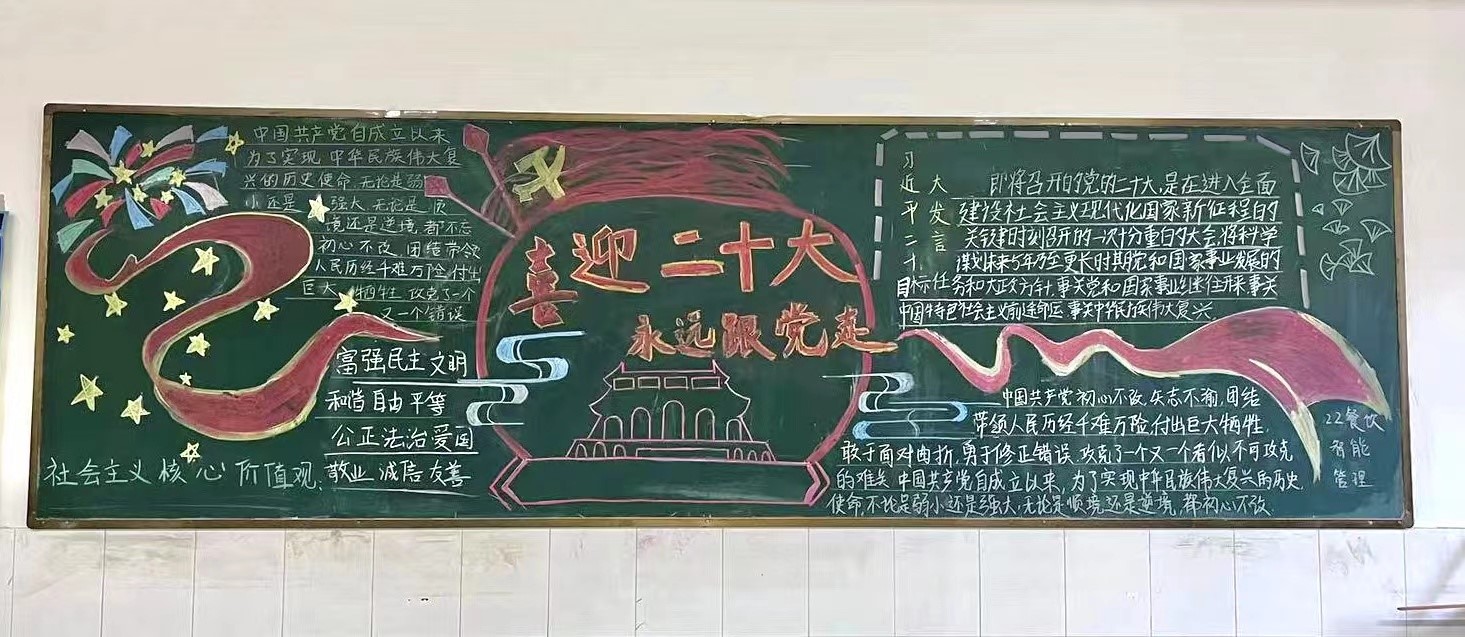 中国共产党自成立以来
为了实现中华民族伟大复
兴的历史使命,无论是弱
小还是 强大,无论是顺
境还是逆境,都不忘
初心不改,团结带领
人民历经千难万险,付出
巨大 牺牲,攻克了一个
又一个错误
富强民主文明
和谐自由平等
公正法治爱国
敬业诚信友善
社会主义核心价值观
喜迎二十大
永远跟党走
习近平二十
大发言
即将召开的党的二十大,是在进入全面
建设社会主义现代化国家新征程的
关键时刻召开的一次十分重白的大会,将科学
谋划未来5年乃至更长时其期党和国家事业发展的
目标任务和大政方针,事关党和国家事业继往开来,事关
中国特色社会主义前途命运,事关中华民族伟大复兴.
中国共产党初心不改,矢志不渝,团结
带领人民历经千难万险,付出巨大牺牲,
敢于面对曲折,勇于修正错误,攻克了一个又一个看似不可攻克
的难关,中国共产党自成立以来,为了实现中华民族伟大复兴的历史
使命,不论是弱小还是强大,无论是顺境还是逆境,都初心不改.
22餐饮
智能
管理